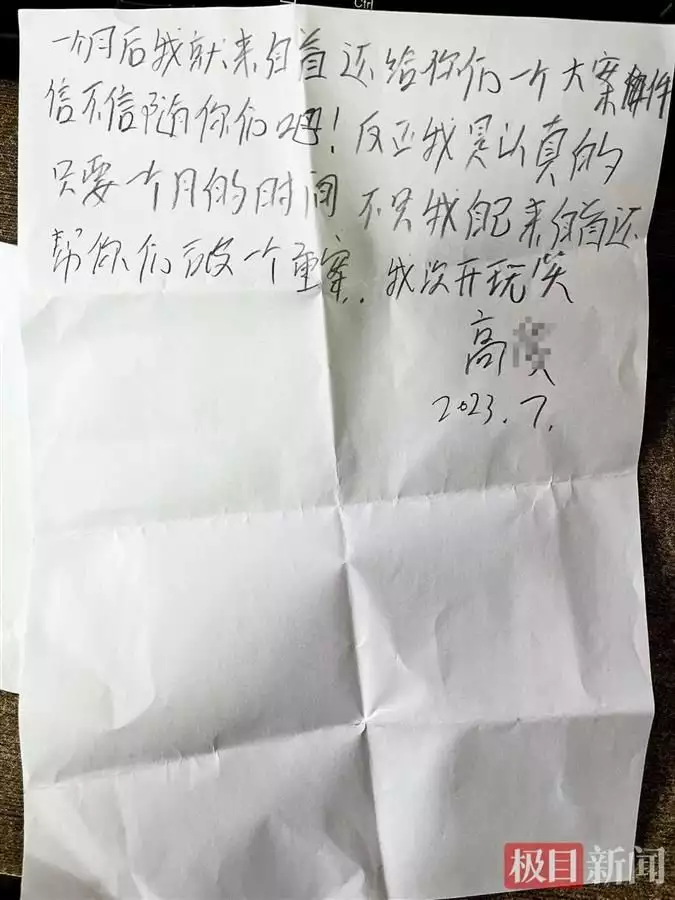 一个月后我就来自首还给你们一个大案件
信不信随你们吧！反正我是认真的
只要一个月的时间 不只我自己来自首还
帮你们破一个重案. 我没开玩笑
高
2023.7.
极目新闻
Ctrl